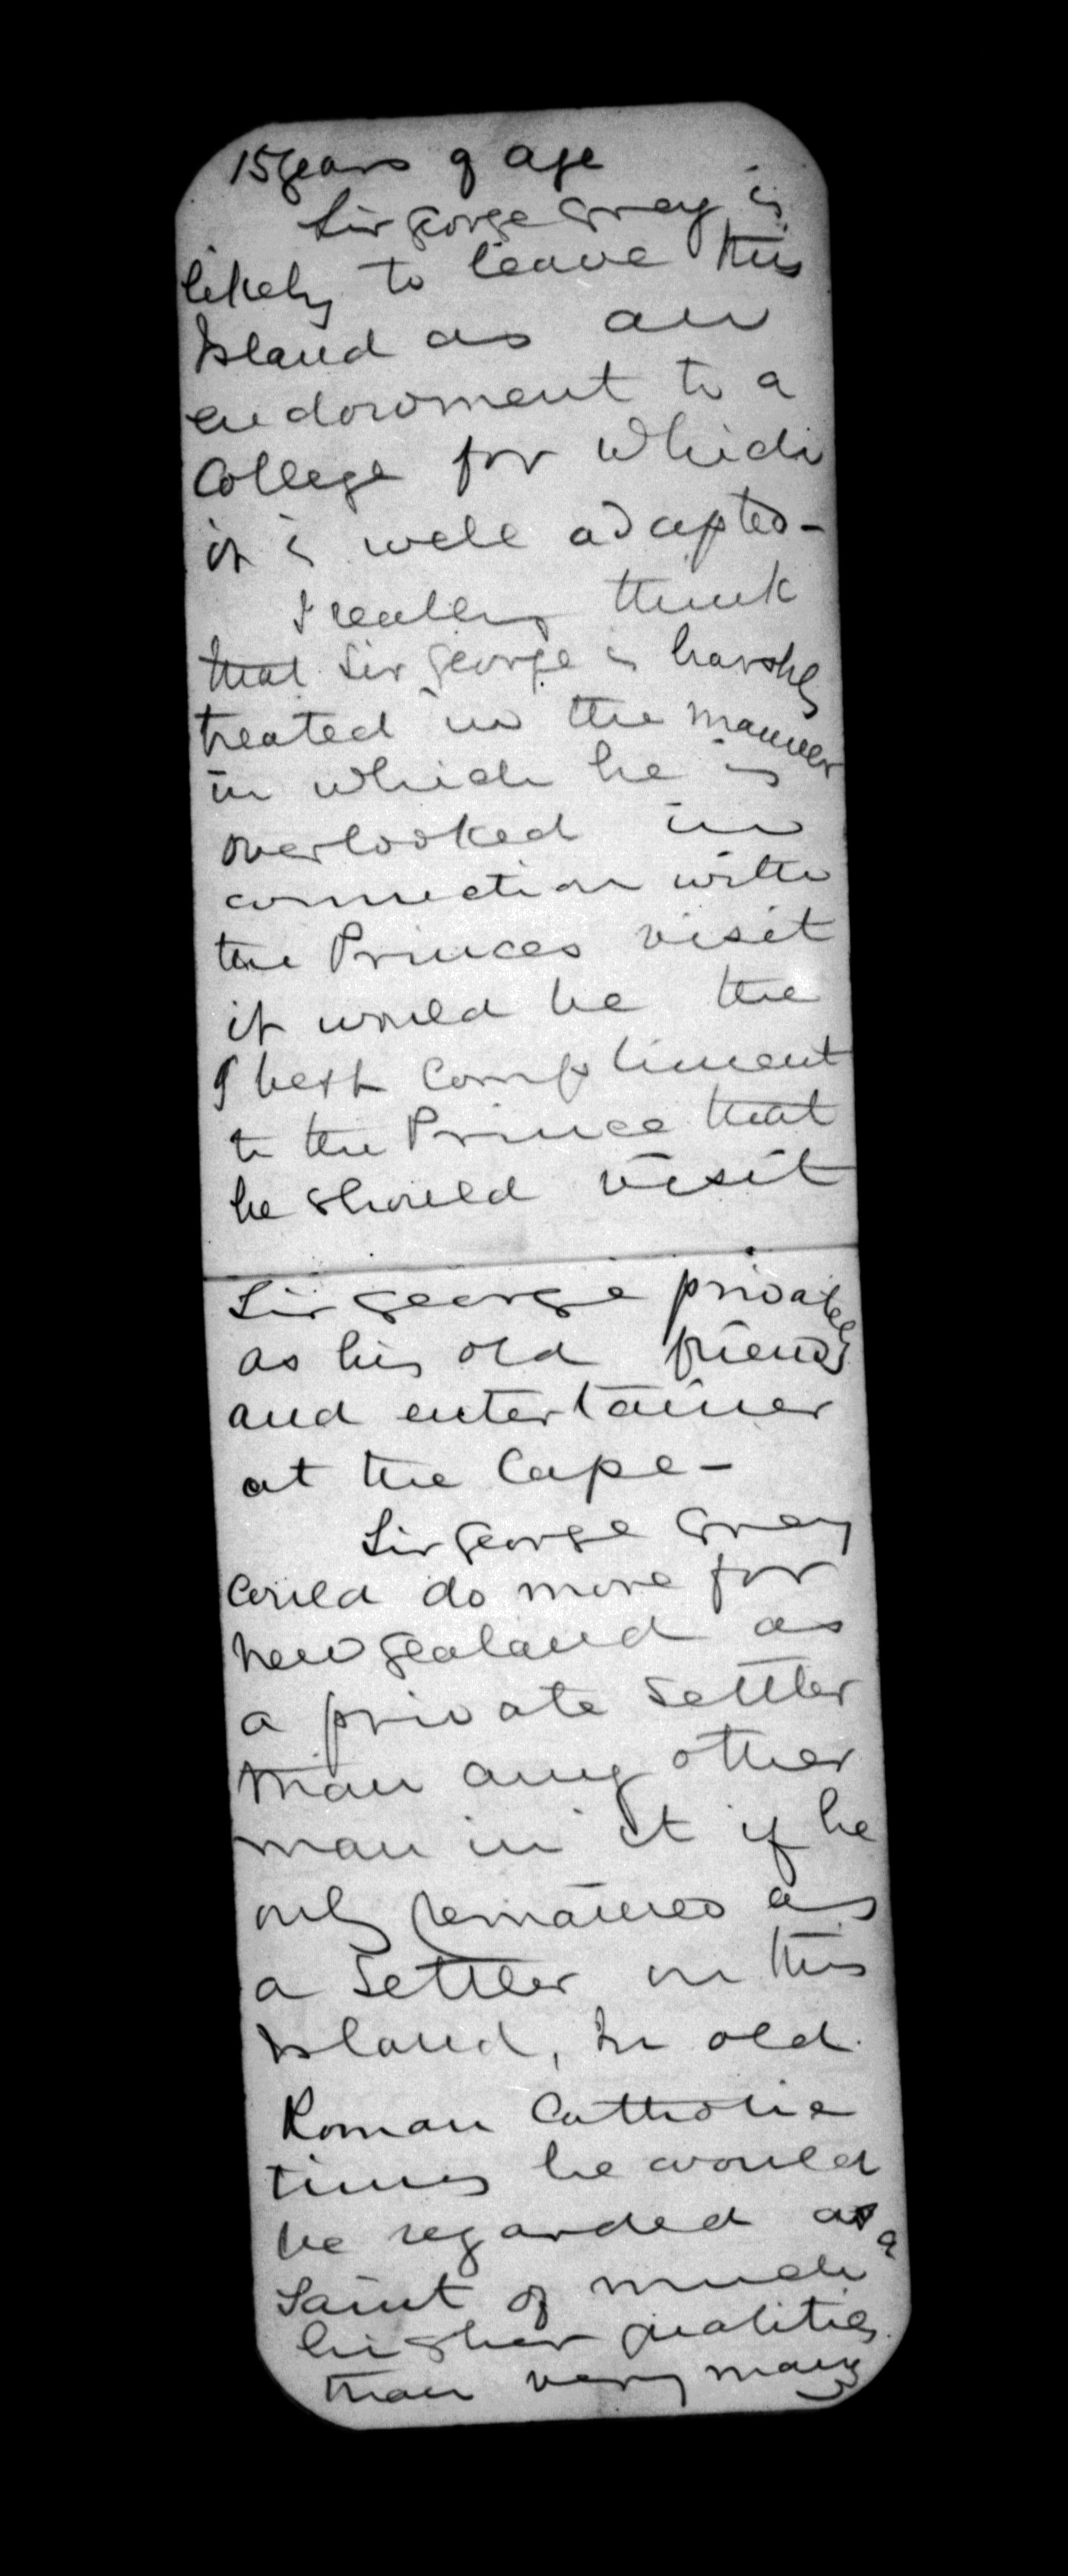 15 years of age
Sir George Grey is
likely to leave this
Island as an
endowment to a
College for which
it is well adapted -
I really think
that Sir George is harshly
treated in the manner
in which he is
overlooked in
connection with
the Princes visit
it would be the
best compliment
to the Prince that
he should visit
Sir George privately
as his old friend
and entertainer
at the Cape -
Sir George Grey
could do more for
New Zealand as
a private settler
than any other
man in it if he
only remained as
a settler on this
Island, In old
Roman Catholic
times he would
be regarded as a
Saint of much
higher qualities
than very many